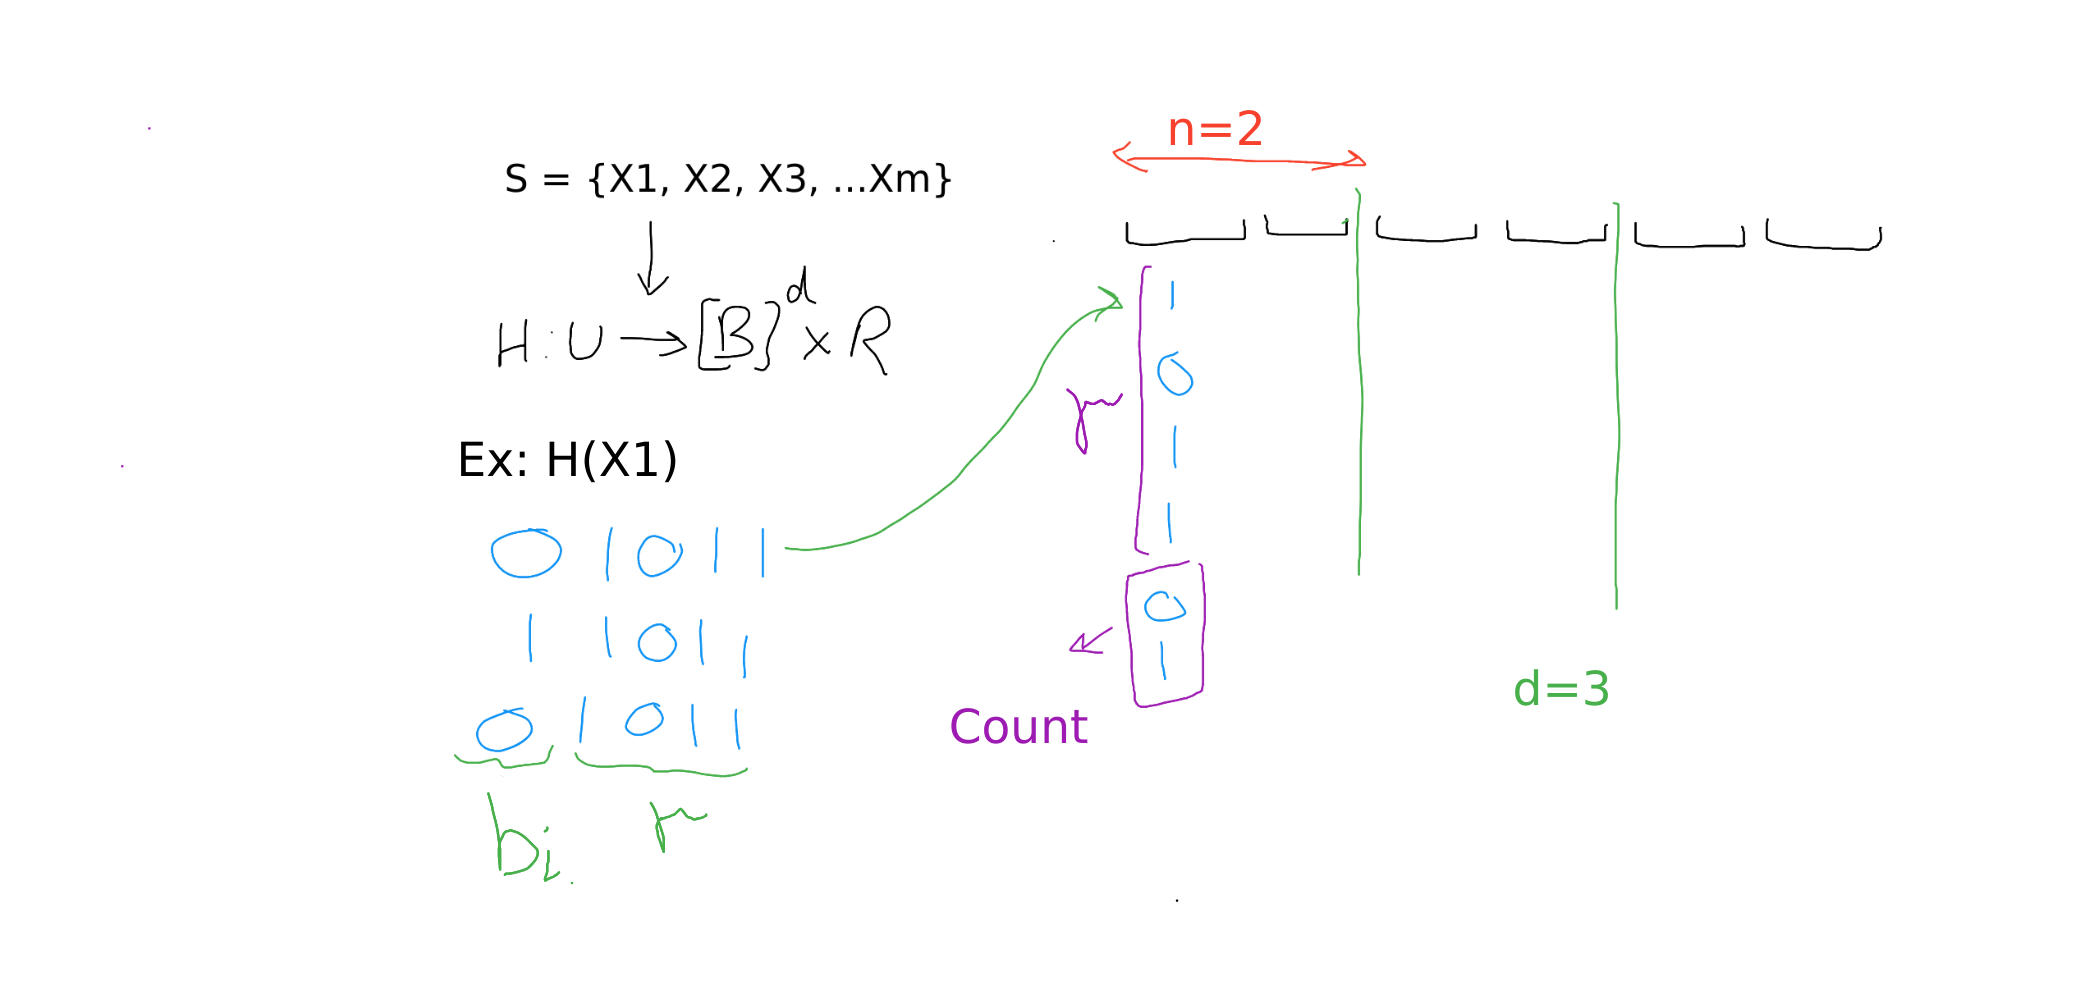 S = {X1, X2, X3, ...Xm}
H : U → [B]^d x R
Ex: H(X1)
0 1 0 1 1
1 1 0 1 1
0 1 0 1 1
bi r
n=2
r
1
0
1
1
0
1
Count
d=3